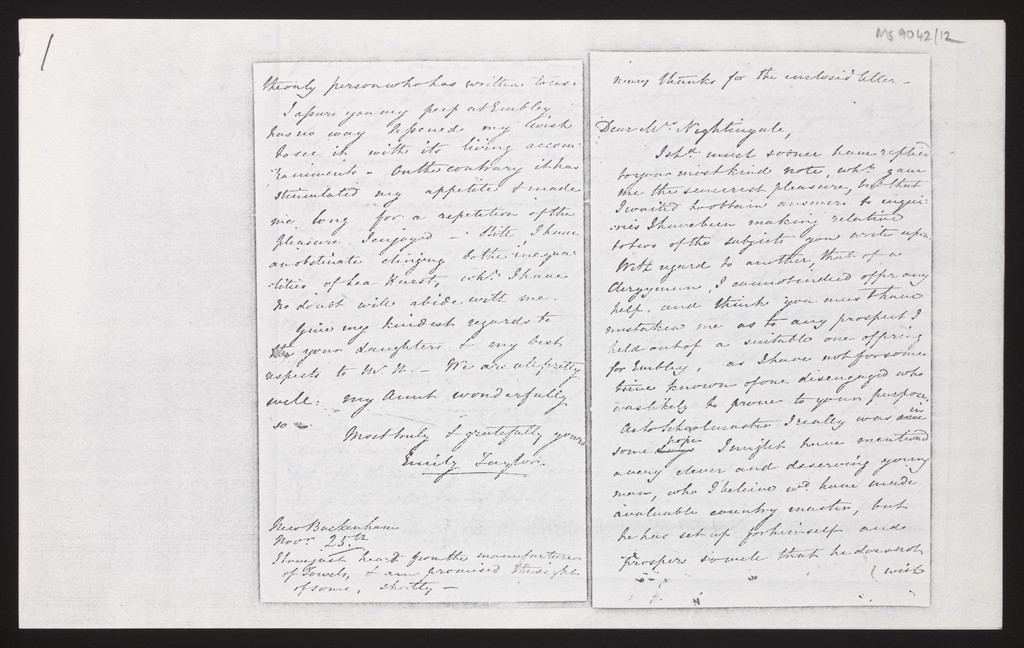 /
MS 9042/12
the only person who has written to us.
I assure you my peep at Embley
has no way lessened my wish
to see it with its living accom-
paniments - On the contrary it has
stimulated my appetite & made
me long for a repetition of the
pleasure I enjoyed - Still I have
an obstinate clinging to the inequa-
-lities of Lea Hurst, whh. I have
no doubt will abide with me.
Give my kindest regards to
your daughters & my best
respects to Mr. N. - We are all pretty
well: my Aunt wonderfully
so -
Most truly & gratefully yours
Emily Taylor.
New Buckenham
Novr 25th
I have just heard from the manufacturer
of Towels, & am promised the sight
of some, shortly -
many thanks for the enclosed letter -
Dear Mrs. Nightingale,
I shd. much sooner have replied
to your most kind note, whh. gave
me the sincerest pleasure, but that
I waited to obtain answers to enqui-
-ries I have been making relative
to two of the subjects you write upon.
With regard to another, that of a
Clergyman, I cannot indeed offer any
help, and think you must have
mistaken me as to any prospect I
held out of a suitable one offering
for Embley, as I have not for some
time known of one disengaged who
was likely to prove to your purpose.
As to Schoolmaster I really was in
some hope I might have mentioned
a very clever and deserving young
man, who I believe wd. have made
a valuable country master, but
he has set up for himself and
prospers so well that he does not
(wish